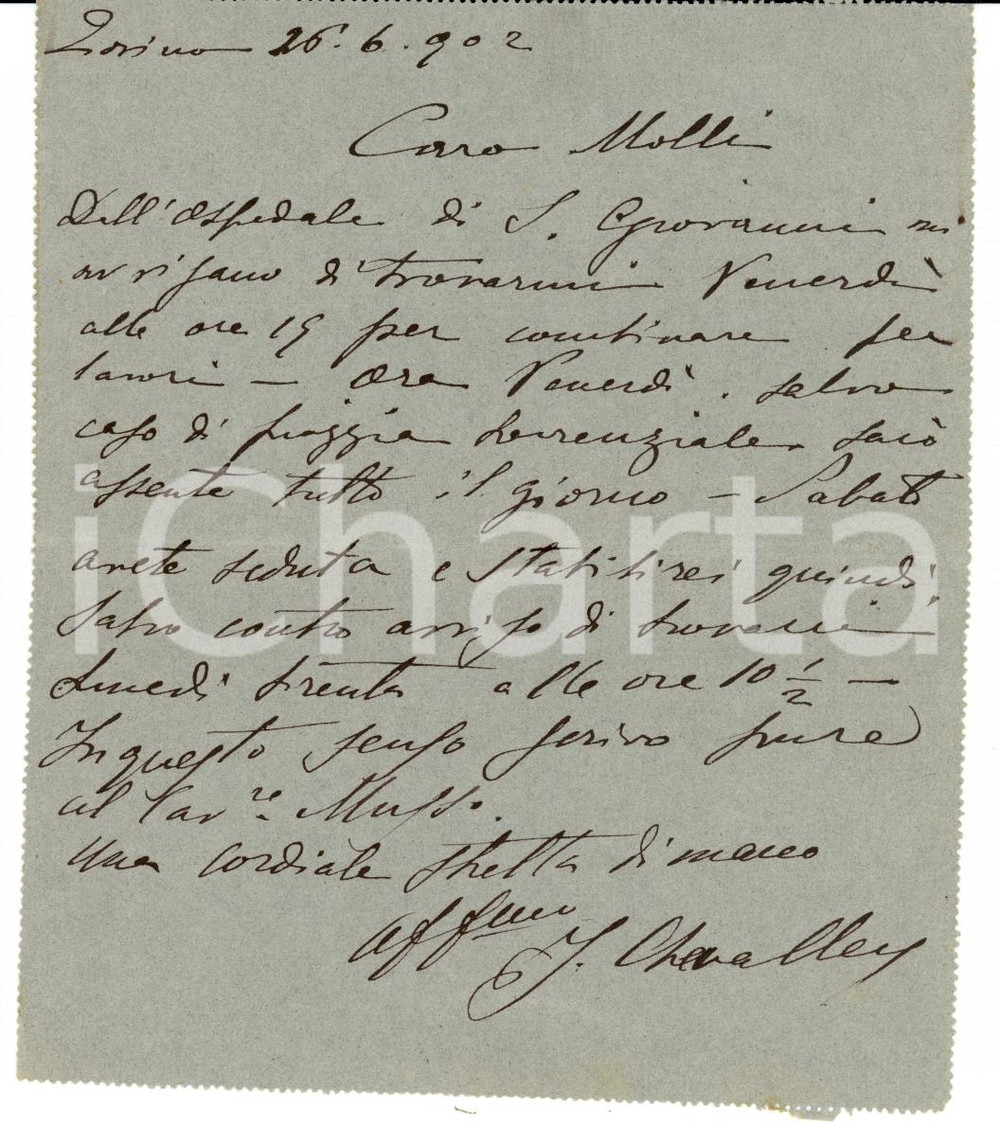 Torino 26.6.902
Caro Molli
Dall'Ospedale di S. Giovanni mi
avvisano di trovarmi Venerdì
alle ore 15 per continuare per
lavori — Ora Venerdì, salvo
caso di pioggia torrenziale sarò
assente tutto il giorno — Sabato
avete seduta e stabilirei quindi,
salvo contro avviso di trovarci
Lunedì trenta alle ore 10 1/2 —
In questo senso scrivo pure
al Cav.re Musso.
Una cordiale stretta di mano
aff.mo
J. Chevalley
iCharta